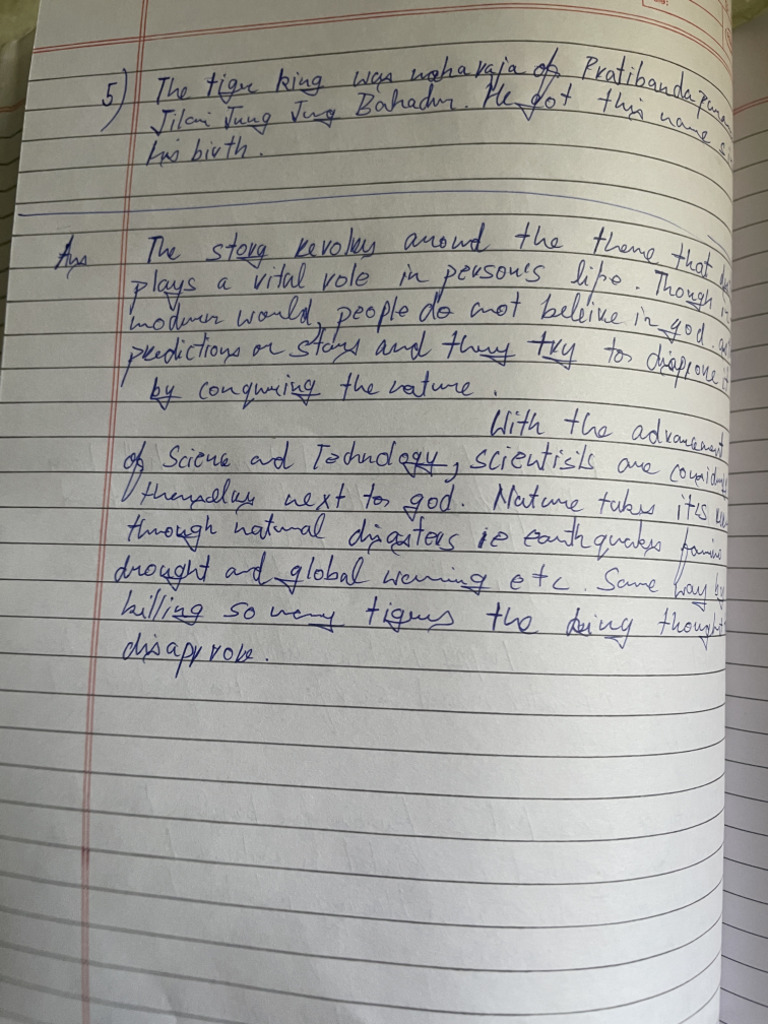 5) The tiger king was maharaja of Pratibandapura
Jilani Jung Jung Bahadur. He got this name
his birth.
Ans The story revolves around the theme that
plays a vital role in person's life. Though in
modern world, people do not beleive in god.
predictions or stars and they try to disapprove it
by conquering the nature.
With the advancement
of Science and Technology, scientists are
themselves next to god. Nature takes it's
through natural disasters ie earthquakes
drought and global warming etc. Same way by
killing so many tigers the king thought
disapprove.